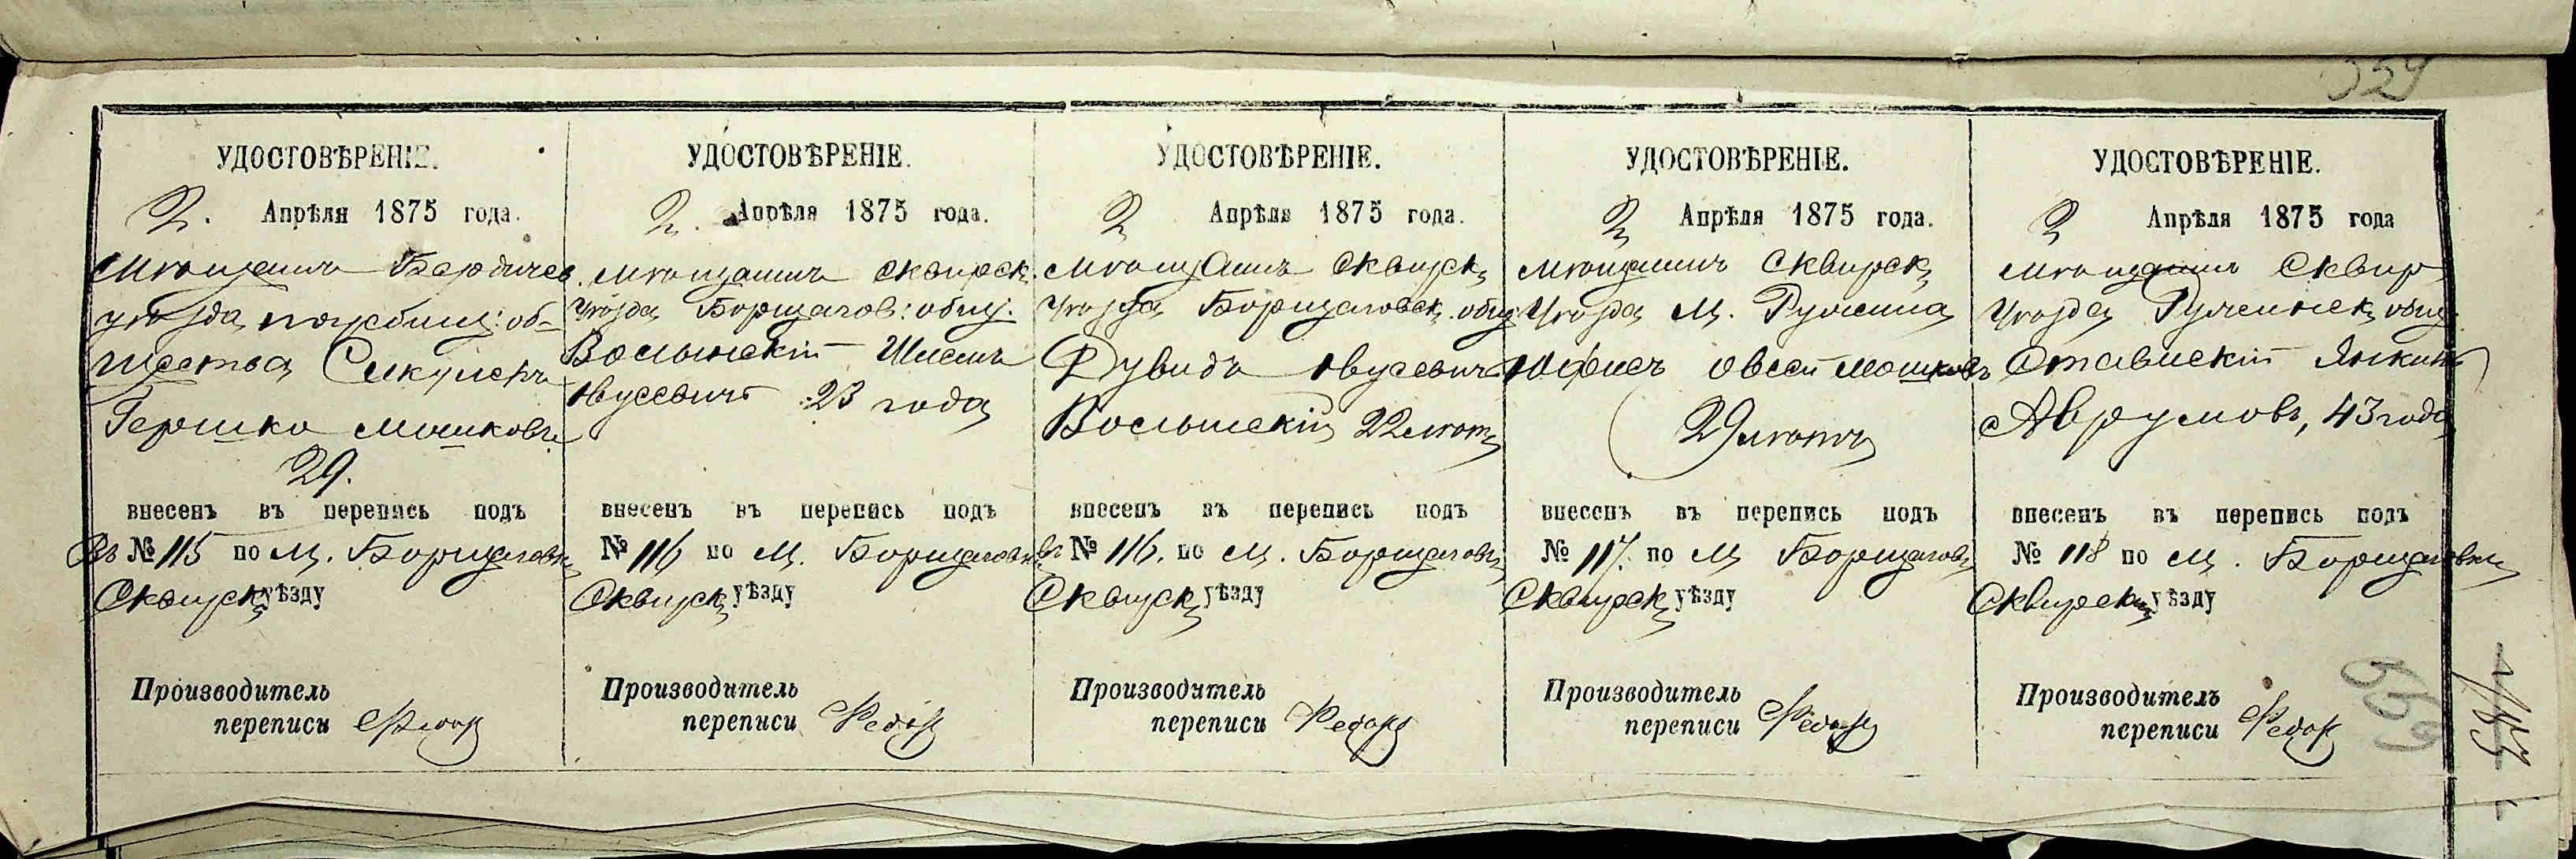 359
УДОСТОВѢРЕНІЕ.
2. Апрѣля 1875 года.
Мѣщанинъ Бердичев.
уѣзда погребищ: об-
щества
Гершко Мошковъ
29.
внесенъ въ перепись подъ
Въ № 115 по м. Борщаговк
Сквирск уѣзду
Производитель
переписи Федор
УДОСТОВѢРЕНІЕ.
2. Апрѣля 1875 года.
мѣщанинъ сквирск.
уѣзда Борщагов: общ.
Волынскій Шлема
Ювусевичъ 23 года
внесенъ въ перепись подъ
№ 116 по м. Борщаговк
Сквирск уѣзду
Производитель
переписи Федор
УДОСТОВѢРЕНІЕ.
2 Апрѣля 1875 года.
мѣщанинъ Сквирск
уѣзда Борщаговск. общ
Дувидъ Ювусевичъ
Волынскій 22 лѣтъ
внесенъ въ перепись подъ
въ № 116. по м. Борщаговк
Сквирск уѣзду
Производитель
переписи Федор
УДОСТОВѢРЕНІЕ.
2 Апрѣля 1875 года.
мѣщанинъ Сквирск
уѣзда м. Ружина
Овсей Мошковъ
29 лѣтъ
внесенъ въ перепись подъ
№ 117. по м Борщагов
Сквирск уѣзду
Производитель
переписи Федор
УДОСТОВѢРЕНІЕ.
2 Апрѣля 1875 года
мѣщанинъ Сквир
уѣзда Ружинск общ.
Ставиский Янкель
Аврумовъ, 43 года
внесенъ въ перепись подъ
№ 118 по м. Борщаговки
Сквирск уѣзду
Производитель
переписи Федор
559